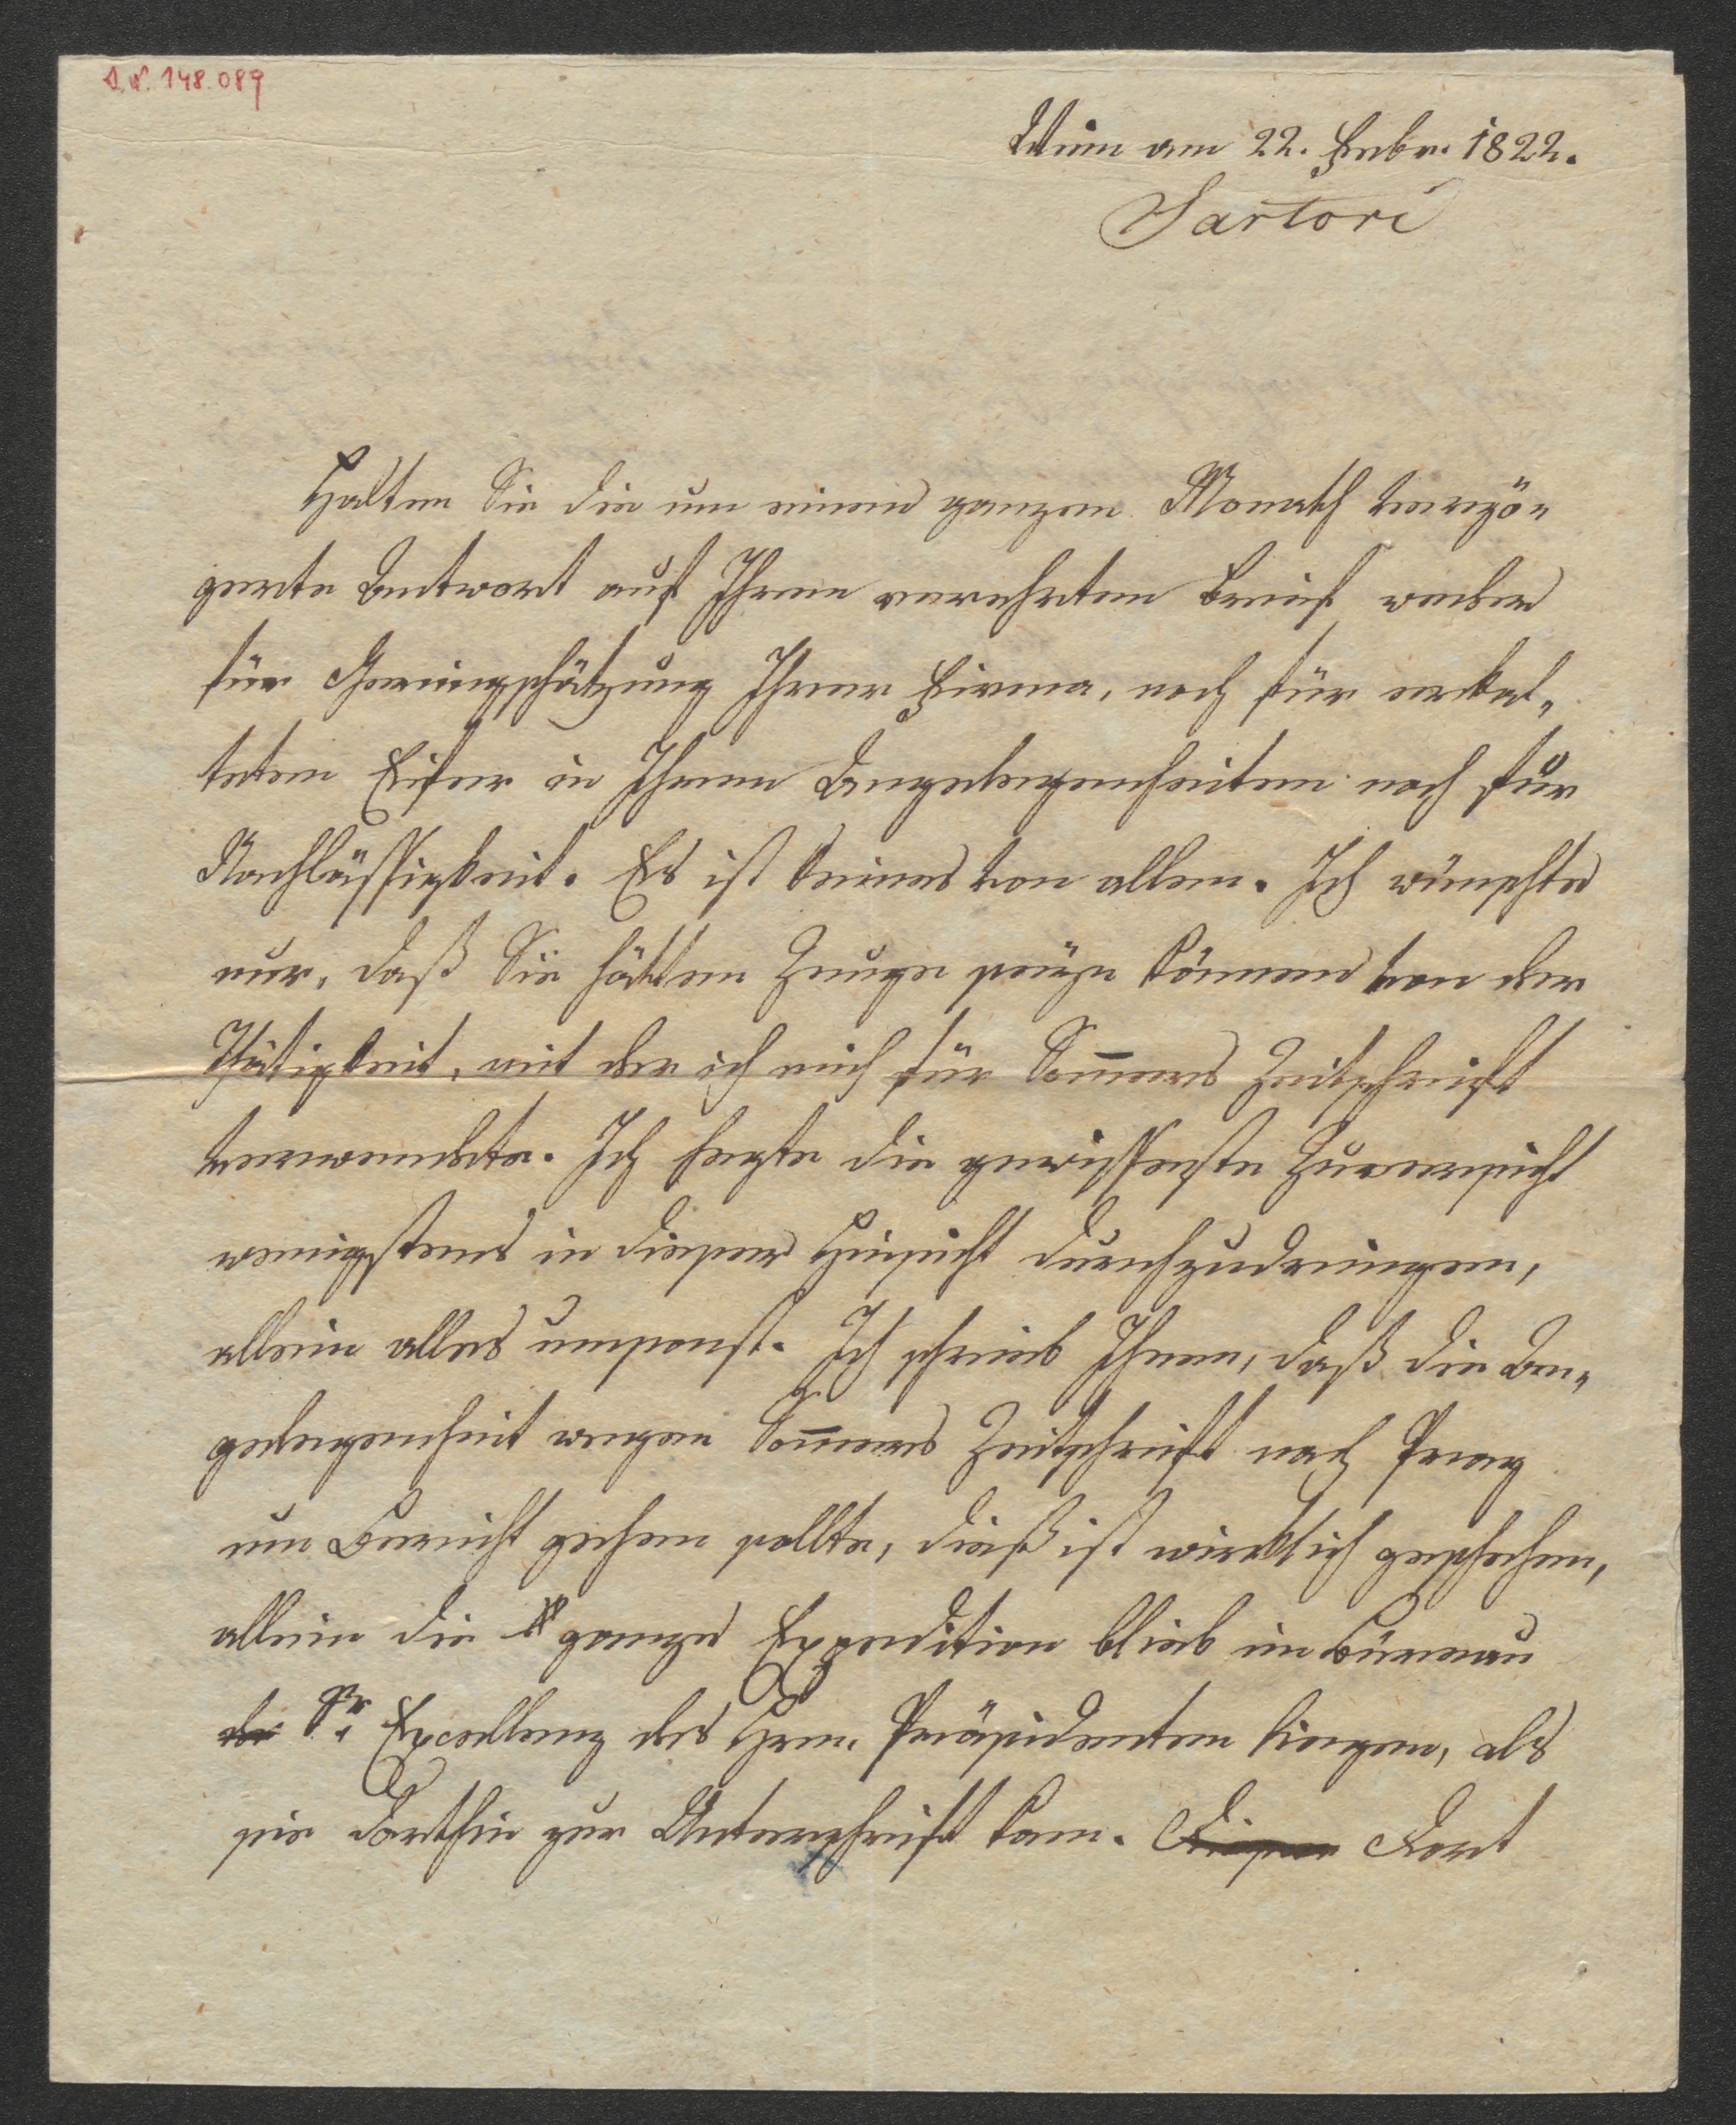 I.N. 148.089
Wien am 22. Febr. 1822.
Sartori
Halten Sie die um einen ganzen Monath verzö-
gerte Antwort auf Ihren verehrten Brief weder
für Geringschätzung Ihrer Firma, noch für erkal-
tetem Eifer in Ihren Angelegenheiten noch für
Nachlässigkeit. Es ist keines von allem. Ich wünschte
nur, daß Sie hätten Zeuge seyn können von der
Thätigkeit, mit der ich mich für Som̄ers Zeitschrift
verwendete. Ich hegte die gewisseste Zuversicht
wenigstens in dieser Hinsicht durchzudringen,
allein alles umsonst. Ich schrieb Ihnen, daß die An-
gelegenheit wegen Som̄ers Zeitschrift nach Prag
um Bericht gehen sollte, dieß ist wirklich geschehen,
allein die ganze Expedition blieb im Büreau
de Sr. Excellenz des Hrn. Präsidenten liegen, als
sie dorthin zur Unterschrift kam. Dieser Dort